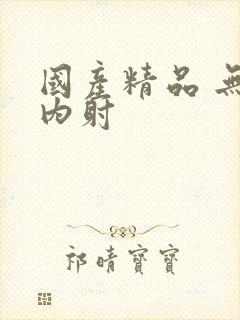 國產精品 無
內射
祁晴寶寶